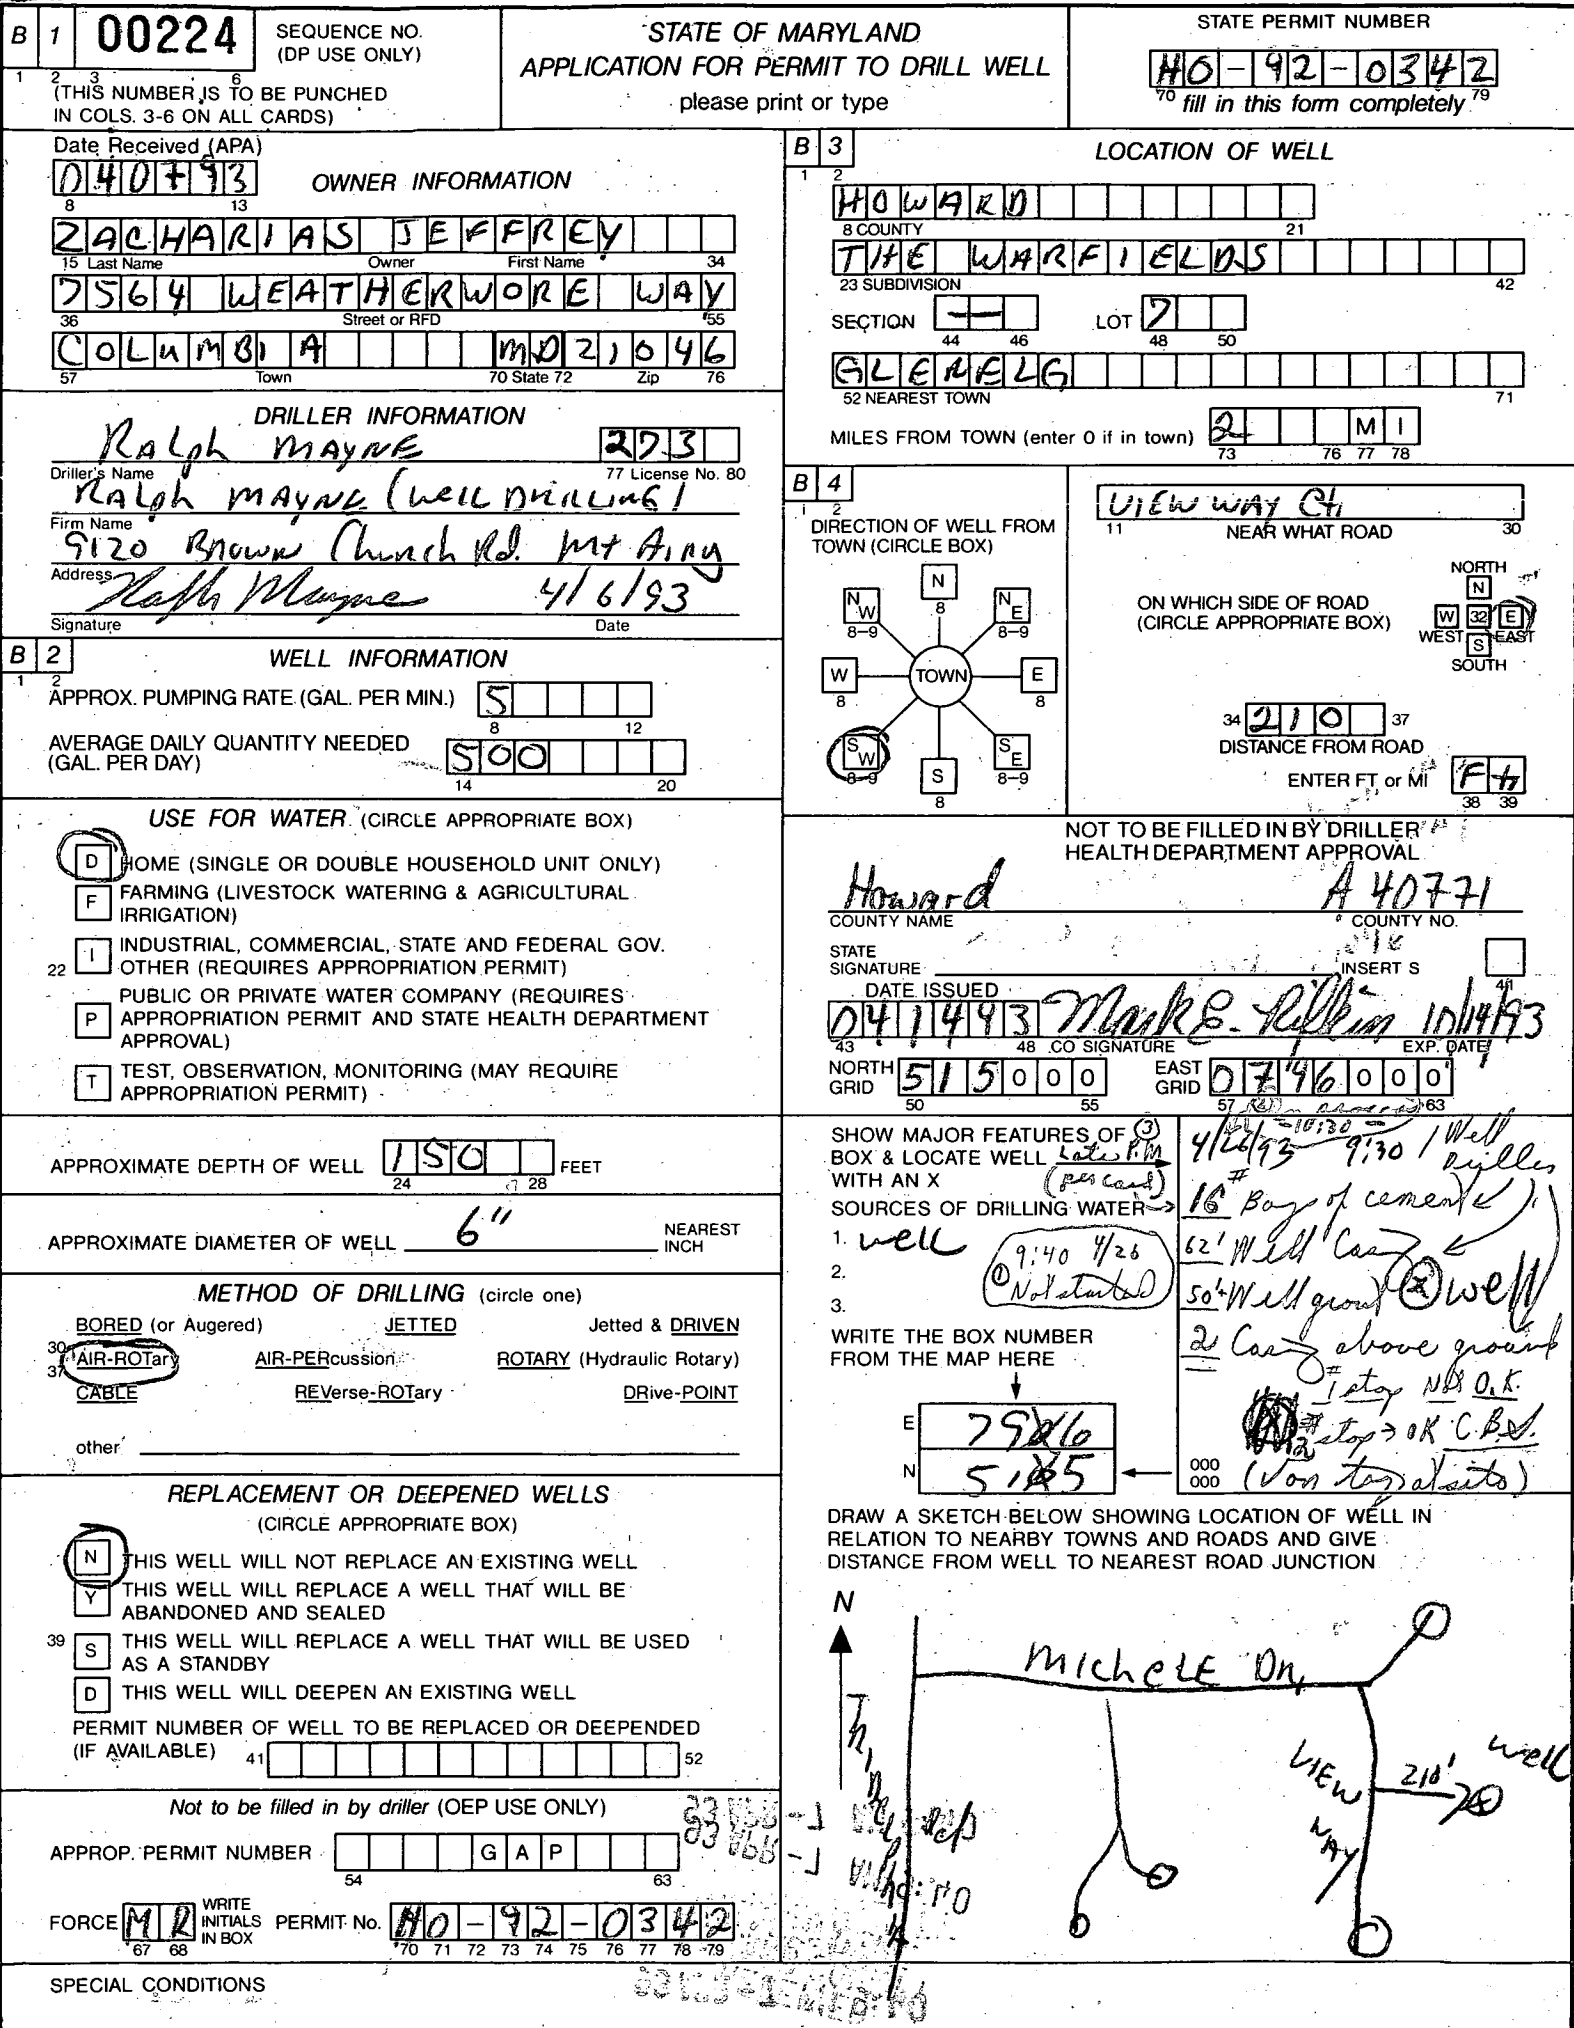 B 1 00224 SEQUENCE NO. (DP USE ONLY)
1 2 3 6
(THIS NUMBER IS TO BE PUNCHED
IN COLS. 3-6 ON ALL CARDS)
STATE OF MARYLAND
APPLICATION FOR PERMIT TO DRILL WELL
please print or type
STATE PERMIT NUMBER
HO-92-0342
70 fill in this form completely 79
Date Received (APA)
040793
8 13
OWNER INFORMATION
ZACHARIAS JEFFREY
15 Last Name Owner First Name 34
7564 WEATHERWORE WAY
36 Street or RFD 55
COLUMBIA MD 21046
57 Town 70 State 72 Zip 76
DRILLER INFORMATION
RALph MAYNE 273
Driller's Name 77 License No. 80
RALph MAYNE (WELL DRILLING)
Firm Name
9120 BROWN Church Rd. Mt Airy
Address
Ralph Mayne 4/6/93
Signature Date
B 2 WELL INFORMATION
1 2
APPROX. PUMPING RATE (GAL. PER MIN.) 5
8 12
AVERAGE DAILY QUANTITY NEEDED
(GAL. PER DAY) 500
14 20
USE FOR WATER (CIRCLE APPROPRIATE BOX)
D HOME (SINGLE OR DOUBLE HOUSEHOLD UNIT ONLY)
F FARMING (LIVESTOCK WATERING & AGRICULTURAL
IRRIGATION)
I INDUSTRIAL, COMMERCIAL, STATE AND FEDERAL GOV.
22 OTHER (REQUIRES APPROPRIATION PERMIT)
P PUBLIC OR PRIVATE WATER COMPANY (REQUIRES
APPROPRIATION PERMIT AND STATE HEALTH DEPARTMENT
APPROVAL)
T TEST, OBSERVATION, MONITORING (MAY REQUIRE
APPROPRIATION PERMIT)
APPROXIMATE DEPTH OF WELL 150 FEET
24 28
APPROXIMATE DIAMETER OF WELL 6" NEAREST INCH
METHOD OF DRILLING (circle one)
BORED (or Augered) JETTED Jetted & DRIVEN
30 AIR-ROTary AIR-PERcussion ROTARY (Hydraulic Rotary)
37
CABLE REVerse-ROTary DRive-POINT
other
REPLACEMENT OR DEEPENED WELLS
(CIRCLE APPROPRIATE BOX)
N THIS WELL WILL NOT REPLACE AN EXISTING WELL
Y THIS WELL WILL REPLACE A WELL THAT WILL BE
ABANDONED AND SEALED
39 S THIS WELL WILL REPLACE A WELL THAT WILL BE USED
AS A STANDBY
D THIS WELL WILL DEEPEN AN EXISTING WELL
PERMIT NUMBER OF WELL TO BE REPLACED OR DEEPENDED
(IF AVAILABLE) 41 52
Not to be filled in by driller (OEP USE ONLY)
APPROP. PERMIT NUMBER GAP
54 63
FORCE MR WRITE INITIALS IN BOX PERMIT No. HO-92-0342
67 68 70 71 72 73 74 75 76 77 78 79
SPECIAL CONDITIONS
B 3 LOCATION OF WELL
1 2
HOWARD
8 COUNTY 21
THE WARFIELDS
23 SUBDIVISION 42
SECTION LOT 7
44 46 48 50
GLENELG
52 NEAREST TOWN 71
MILES FROM TOWN (enter 0 if in town) 2 MI
73 76 77 78
B 4
1 2
DIRECTION OF WELL FROM
TOWN (CIRCLE BOX)
N
8
NW NE
8-9 8-9
W TOWN E
8 8
SW SE
8-9 8-9
S
8
VIEW WAY Ct.
11 NEAR WHAT ROAD 30
ON WHICH SIDE OF ROAD
(CIRCLE APPROPRIATE BOX)
NORTH
N
W 32 E
WEST EAST
S
SOUTH
34 210 37
DISTANCE FROM ROAD
ENTER FT or MI Ft
38 39
NOT TO BE FILLED IN BY DRILLER
HEALTH DEPARTMENT APPROVAL
Howard A 40771
COUNTY NAME COUNTY NO.
STATE
SIGNATURE INSERT S
41
DATE ISSUED
041493 Mark E. Rifkin 10/14/93
43 48 CO SIGNATURE EXP. DATE
NORTH GRID 515000 EAST GRID 0796000
50 55 57 63
SHOW MAJOR FEATURES OF
BOX & LOCATE WELL
WITH AN X
③ Late P.M (per card)
SOURCES OF DRILLING WATER
1. well
2.
3.
① 9:40 4/26
Not started
4/26/93 10:30 9:30 / Well Driller
16 # Bags of cement
62' Well Casing
50' + Well grout
X well
2 Casing above ground
#1 stop Not O.K.
#2 stop → OK C.B.S.
WRITE THE BOX NUMBER
FROM THE MAP HERE
E
N
000
000
DRAW A SKETCH BELOW SHOWING LOCATION OF WELL IN
RELATION TO NEARBY TOWNS AND ROADS AND GIVE
DISTANCE FROM WELL TO NEAREST ROAD JUNCTION
N
MICHELE Dr,
VIEW WAY
210'
well